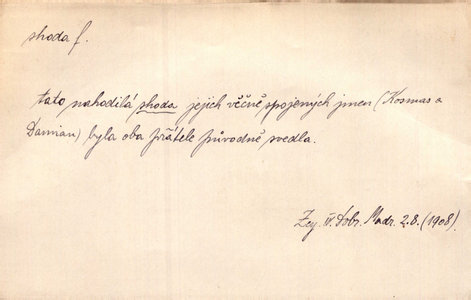 shoda f.
tato nahodilá shoda jejich věčně spojených jmen (Kosmas a
Damian) byla oba přátele původně svedla.
Zey. IV. Dobr. Madr. 2.8. (1908)